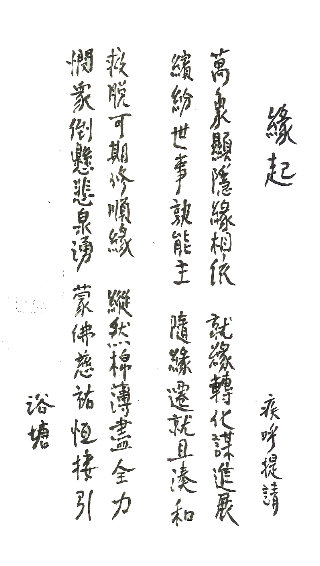 緣起
疾呼提請
萬象顯隱緣相依 就緣轉化謀進展
繽紛世事孰能主 隨緣遷就且湊和
救脫可期修順緣 縱然棉薄盡全力
憫眾倒懸悲泉湧 蒙佛慈祐恒接引
浴塘